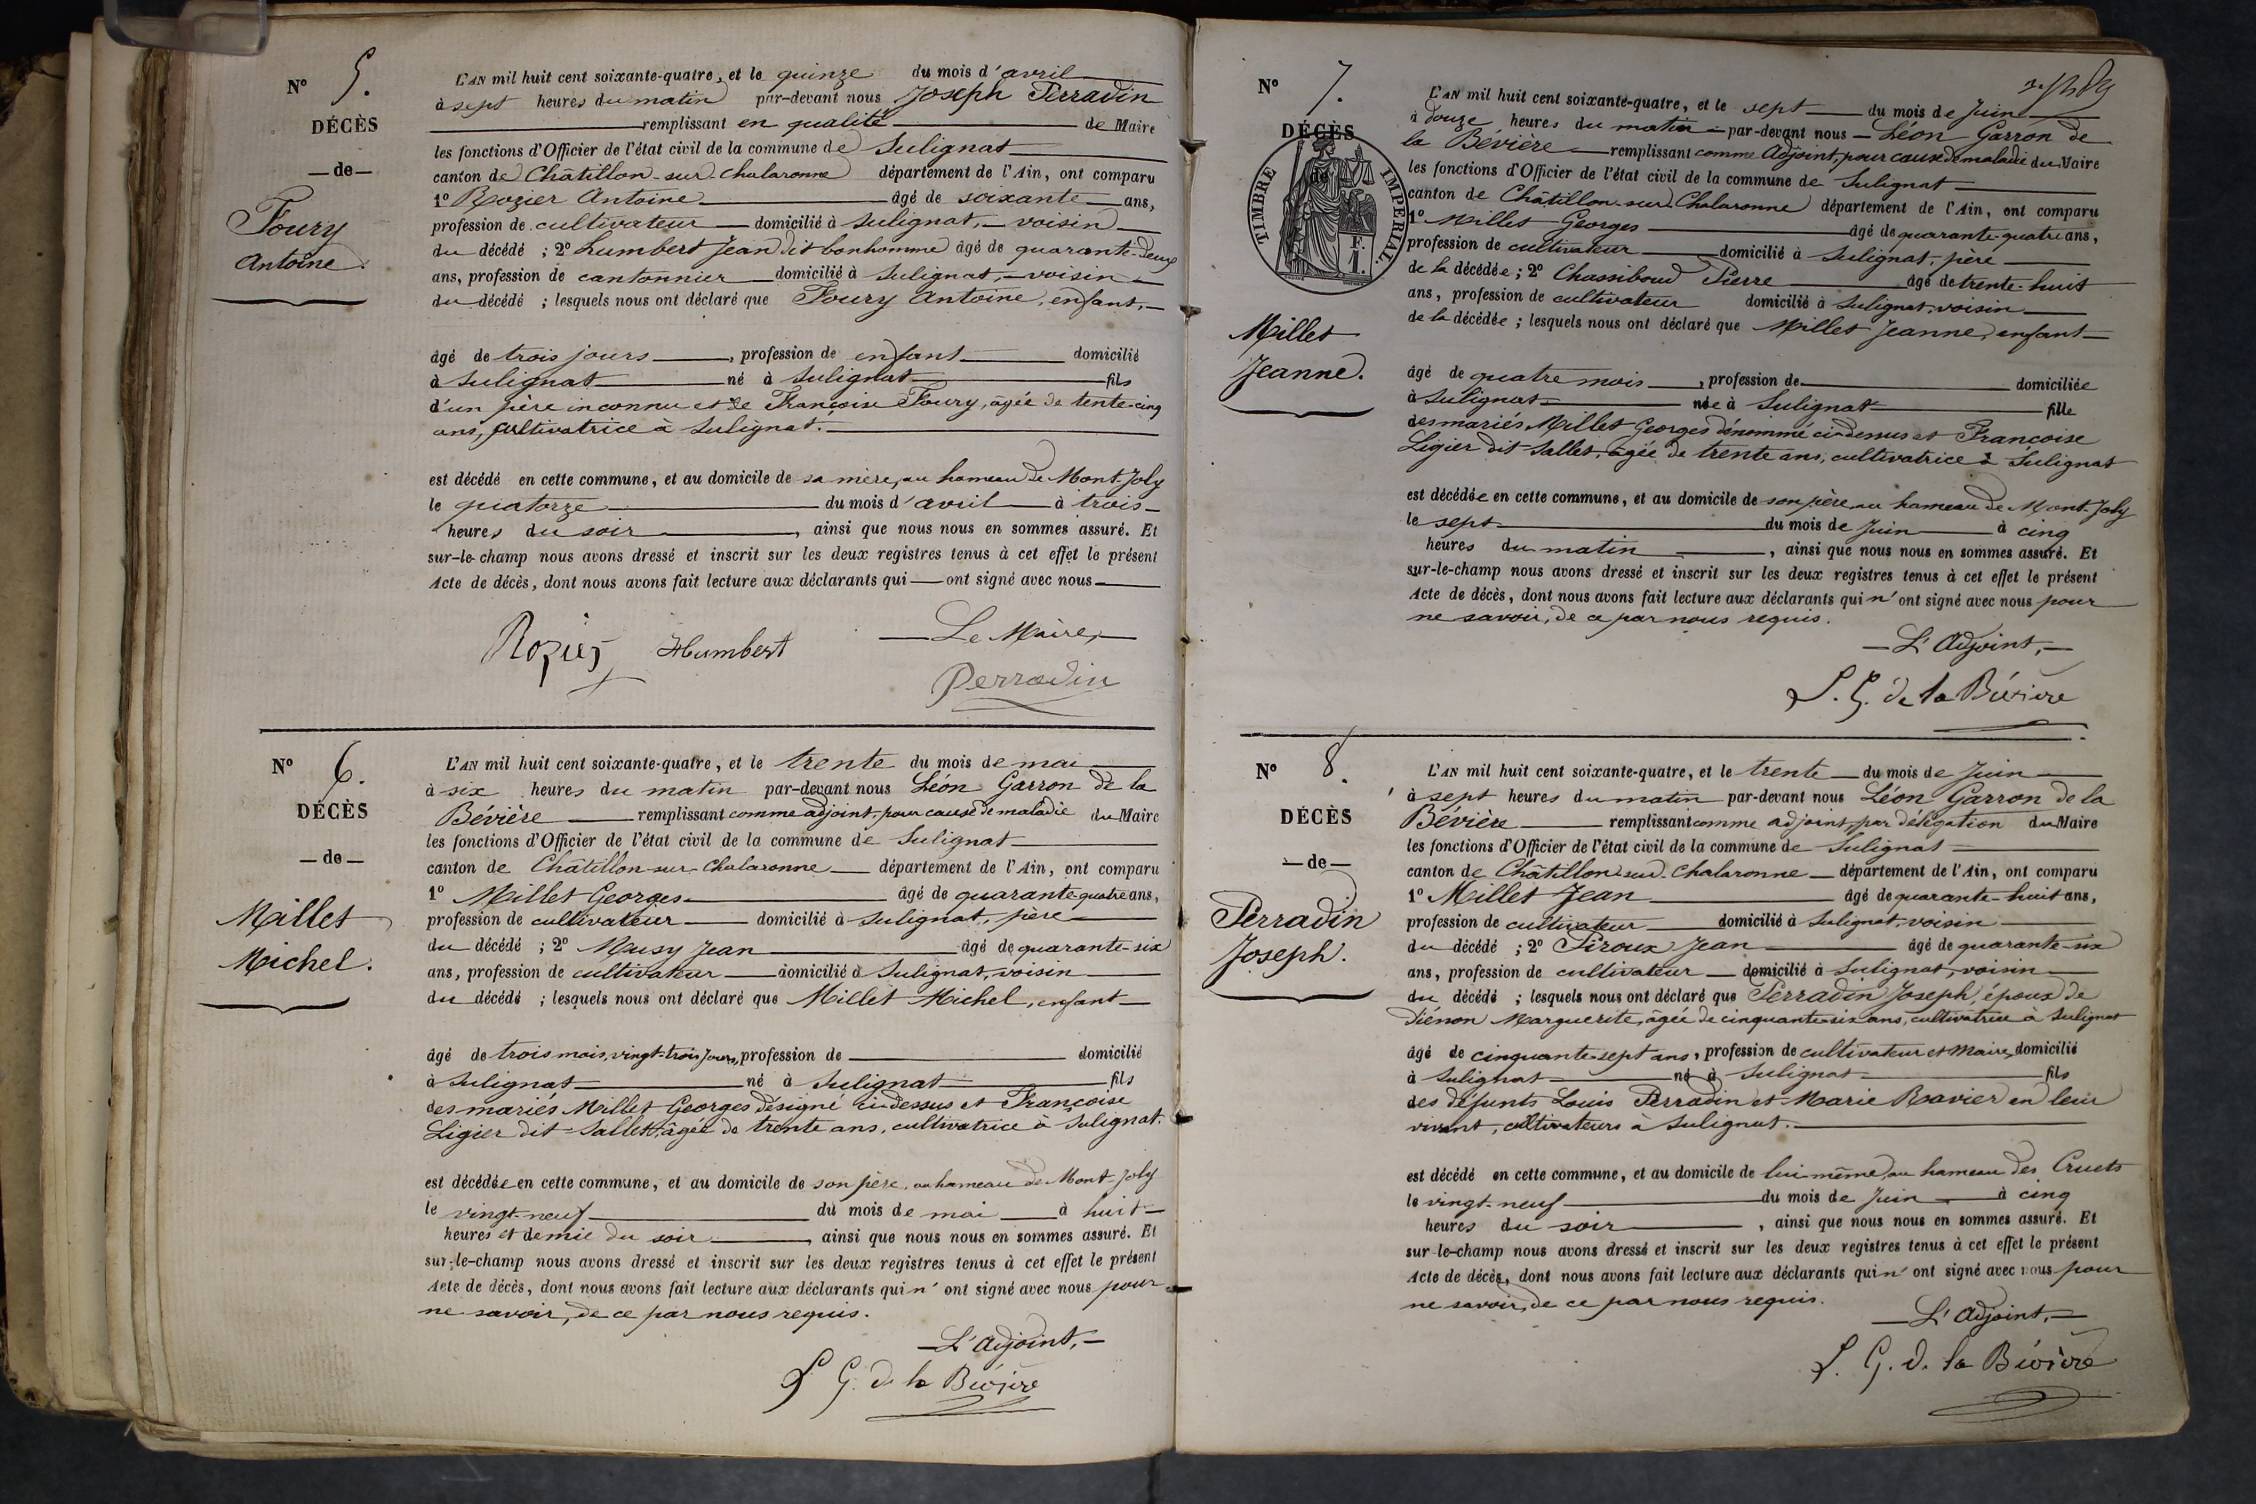 N° 5.
DÉCÈS
— de —
Foury
Antoine.
L'AN mil huit cent soixante-quatre, et le quinze du mois d'avril
à sept heures du matin par-devant nous Joseph Perradin
remplissant en qualité de Maire
les fonctions d'Officier de l'état civil de la commune de Sulignat
canton de Châtillon-sur-Chalaronne département de l'Ain, ont comparu
1° Rozier Antoine âgé de soixante ans,
profession de cultivateur domicilié à Sulignat, voisin
du décédé ; 2° humbert Jean dit bonhomme âgé de quarante-deux
ans, profession de cantonnier domicilié à Sulignat, voisin
du décédé ; lesquels nous ont déclaré que Foury Antoine, enfant,
âgé de trois jours, profession de enfant domicilié
à Sulignat né à Sulignat fils
d'un père inconnu et de Françoise Foury, âgée de tente-cinq
ans, cultivatrice à Sulignat.
est décédé en cette commune, et au domicile de sa mère, au hameau de Mont-Joly
le quatorze du mois d'avril à trois
heures du soir, ainsi que nous nous en sommes assuré. Et
sur-le-champ nous avons dressé et inscrit sur les deux registres tenus à cet effet le présent
Acte de décès, dont nous avons fait lecture aux déclarants qui ont signé avec nous
Le Maire,
Rozier Humbert
Perradin
N° 6.
DÉCÈS
— de —
Millet
Michel.
L'AN mil huit cent soixante-quatre, et le trente du mois de mai
à six heures du matin par-devant nous Léon Garron de la
Bévière remplissant comme adjoint, pour cause de maladie du Maire
les fonctions d'Officier de l'état civil de la commune de Sulignat
canton de Châtillon-sur-Chalaronne département de l'Ain, ont comparu
1° Millet Georges âgé de quarante-quatre ans,
profession de cultivateur domicilié à Sulignat, père
du décédé ; 2° Musy Jean âgé de quarante-six
ans, profession de cultivateur domicilié à Sulignat, voisin
du décédé ; lesquels nous ont déclaré que Millet Michel, enfant
âgé de trois mois, vingt-trois jours, profession de domicilié
à Sulignat né à Sulignat fils
des mariés Millet Georges désigné ci-dessus et Françoise
Ligier dit Sallet, âgée de trente ans, cultivatrice à Sulignat.
est décédée en cette commune, et au domicile de son père, au hameau de Mont-Joly
le vingt-neuf du mois de mai à huit
heures et demie du soir, ainsi que nous nous en sommes assuré. Et
sur-le-champ nous avons dressé et inscrit sur les deux registres tenus à cet effet le présent
Acte de décès, dont nous avons fait lecture aux déclarants qui n'ont signé avec nous pour
ne savoir, de ce par nous requis.
L'Adjoint,
L G. de la Bévière
N° 7.
DÉCÈS
de
TIMBRE IMPERIAL.
F.
1.
Millet
Jeanne.
L'AN mil huit cent soixante-quatre, et le sept du mois de Juin
à douze heures du matin par-devant nous Léon Garron de
la Bévière remplissant comme Adjoint, pour cause de maladie du Maire
les fonctions d'Officier de l'état civil de la commune de Sulignat
canton de Châtillon-sur-Chalaronne département de l'Ain, ont comparu
1° Millet Georges âgé de quarante-quatre ans,
profession de cultivateur domicilié à Sulignat, père
de la décédée ; 2° Chassiboud Pierre âgé de trente-huit
ans, profession de cultivateur domicilié à Sulignat, voisin
de la décédée ; lesquels nous ont déclaré que Millet Jeanne, enfant
âgé de quatre mois, profession de domiciliée
à Sulignat née à Sulignat fille
des mariés Millet Georges dénommé ci-dessus et Françoise
Ligier dit Sallet, âgée de trente ans, cultivatrice à Sulignat
est décédée en cette commune, et au domicile de son père, au hameau de Mont-Joly
le sept du mois de Juin à cinq
heures du matin, ainsi que nous nous en sommes assuré. Et
sur-le-champ nous avons dressé et inscrit sur les deux registres tenus à cet effet le présent
Acte de décès, dont nous avons fait lecture aux déclarants qui n'ont signé avec nous pour
ne savoir, de ce par nous requis.
L'Adjoint,
L. G. de la Bévière
N° 8.
DÉCÈS
— de —
Perradin
Joseph.
L'AN mil huit cent soixante-quatre, et le trente du mois de Juin
à sept heures du matin par-devant nous Léon Garron de la
Bévière remplissant comme adjoint, par délégation du Maire
les fonctions d'Officier de l'état civil de la commune de Sulignat
canton de Châtillon-sur-Chalaronne département de l'Ain, ont comparu
1° Millet Jean âgé de quarante-huit ans,
profession de cultivateur domicilié à Sulignat, voisin
du décédé ; 2° Péroux Jean âgé de quarante-six
ans, profession de cultivateur domicilié à Sulignat, voisin
du décédé ; lesquels nous ont déclaré que Perradin Joseph, époux de
Diénon Marguerite, âgée de cinquante-six ans, cultivatrice à Sulignat
âgé de cinquante-sept ans, profession de cultivateur et Maire, domicilié
à Sulignat né à Sulignat fils
des défunts Louis Perradin et Marie Ravier en leur
vivant, cultivateurs à Sulignat.
est décédé en cette commune, et au domicile de lui-même, au hameau des Cruets
le vingt-neuf du mois de Juin à cinq
heures du soir, ainsi que nous nous en sommes assuré. Et
sur-le-champ nous avons dressé et inscrit sur les deux registres tenus à cet effet le présent
Acte de décès, dont nous avons fait lecture aux déclarants qui n'ont signé avec nous pour
ne savoir, de ce par nous requis.
L'Adjoint,
L. G. d. la Bévière